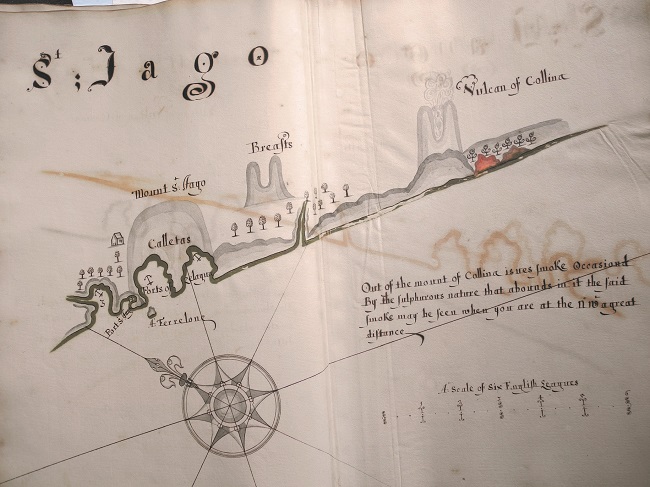 St; Jago
Vulcan of Collina
Breasts
Mount St. Jago
Calletas
Ports of Selagua
Port St
A Ferrelone
Out of the mount of Collina issues smoke Occasiond
By the sulphurous nature that abounds in it the said
smoke may be seen when you are at the a great
distance
A Scale of Six English Leagues